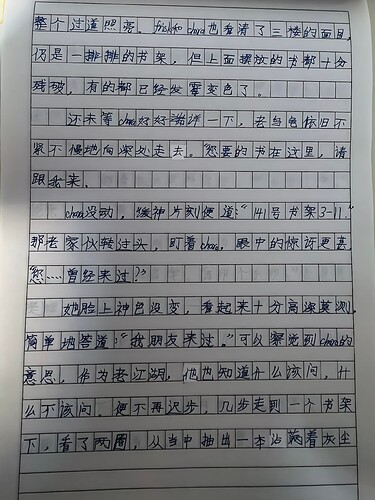 整个过道照亮。frisk和chara也看清了三楼的面目，
仍是一排排的书架，但上面摆放的书都十分
残破，有的都已经发霉变色了。
还未等chara好好端详一下，老乌龟依旧不
紧不慢地向深处走去。“您要的书在这里，请
跟我来。
chara没动，缓神片刻便道：“141号书架3-11。”
那老家伙转过头，盯着chara，眼中的惊讶更甚，
“您……曾经来过？”
她脸上神色没变，看起来十分高深莫测，
简单地答道：“我朋友来过。”可以察觉到chara的
意思，作为老江湖，他也知道什么该问，什
么不该问，便不再迟步，几步走到一个书架
下，看了两圈，从当中抽出一本沾满着灰尘